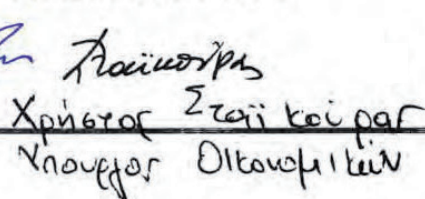 Σταϊκούρας
Χρήστος Σταϊκούρας
Υπουργός Οικονομικών